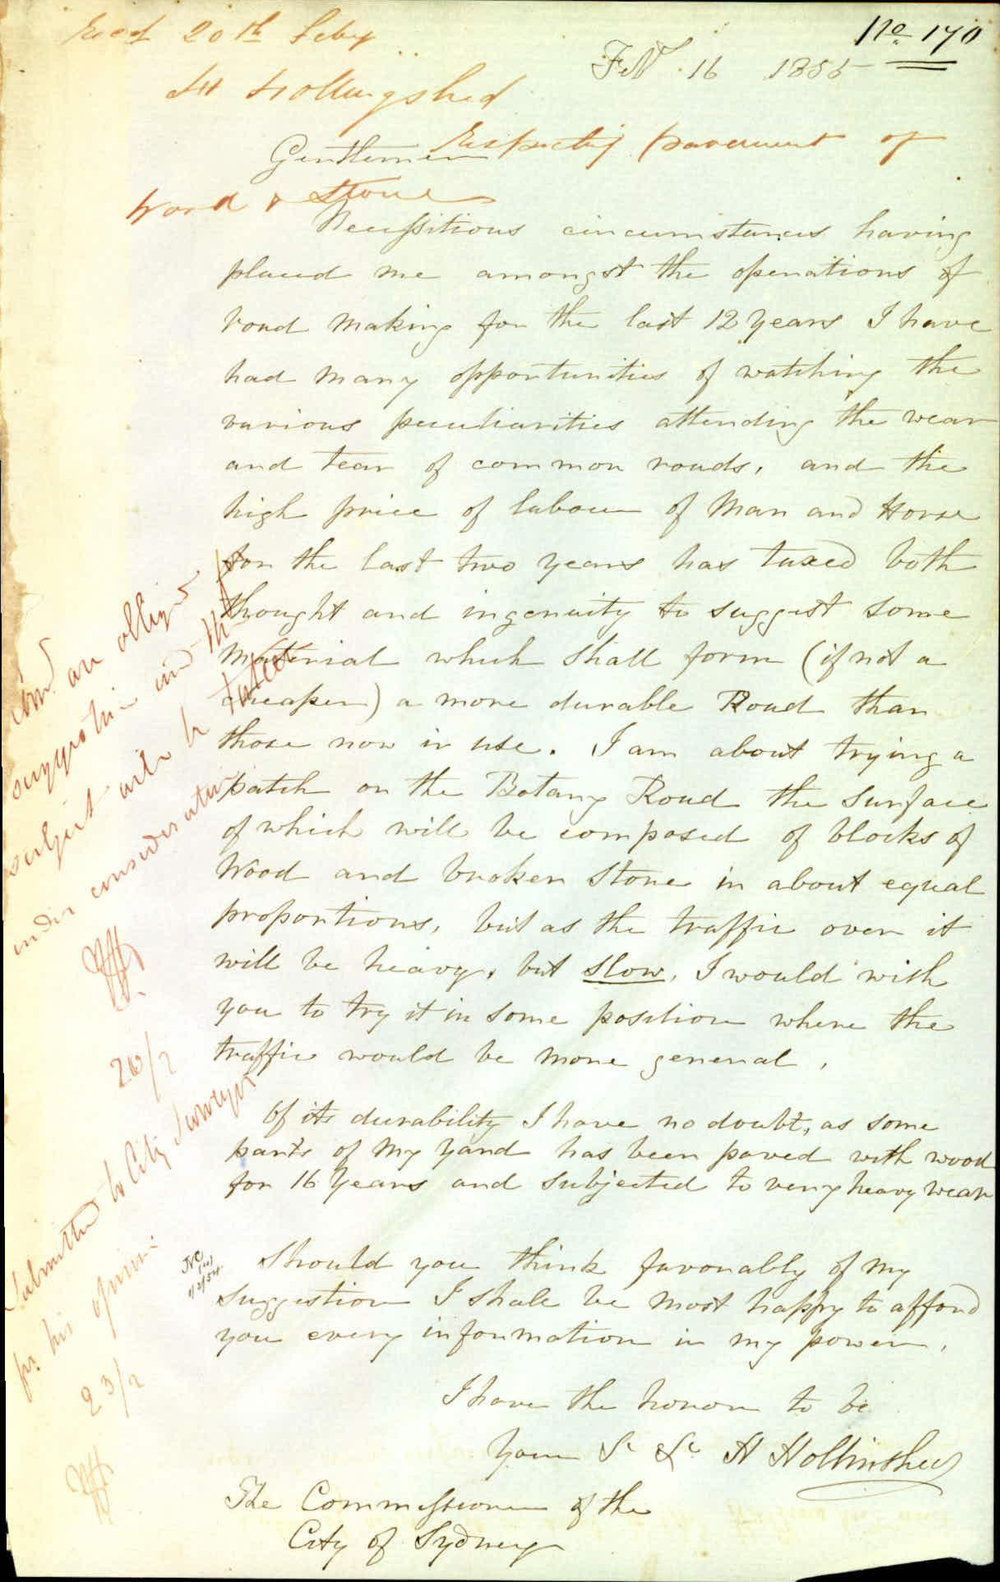 Recd 20th Feby
No. 170
Feb 16 1855
H Hollingshed
Respectig pavement of
Wood & Stone
Gentlemen
Necessitious circumstances having
placed me amongst the operations of
road making for the last 12 years I have
had many opportunities of watching the
various peculiarities attending the wear
and tear of common roads, and the
high price of labour of Man and Horse
for the last two years has taxed both
thought and ingenuity to suggest some
Material which shall form (if not a
cheaper) a more durable Road than
those now in use. I am about trying a
patch on the Botany Road the surface
of which will be composed of blocks of
Wood and broken Stone in about equal
proportions, but as the traffic over it
will be heavy, but slow, I would wish
you to try it in some position where the
traffic would be more general.
Of its durability I have no doubt, as some
parts of my yard has been paved with wood
for 16 Years and subjected to very heavy wear
Should you think favorably of my
Suggestion I shall be most happy to afford
you every information in my power.
I have the honor to be
Your S &c H Hollinshed
The Commissioners of the
City of Sydney
are obliged
suggestion and the
subject will be taken
under consideration
26/2
Submitted to City Surveyor
for his opinion
23/2